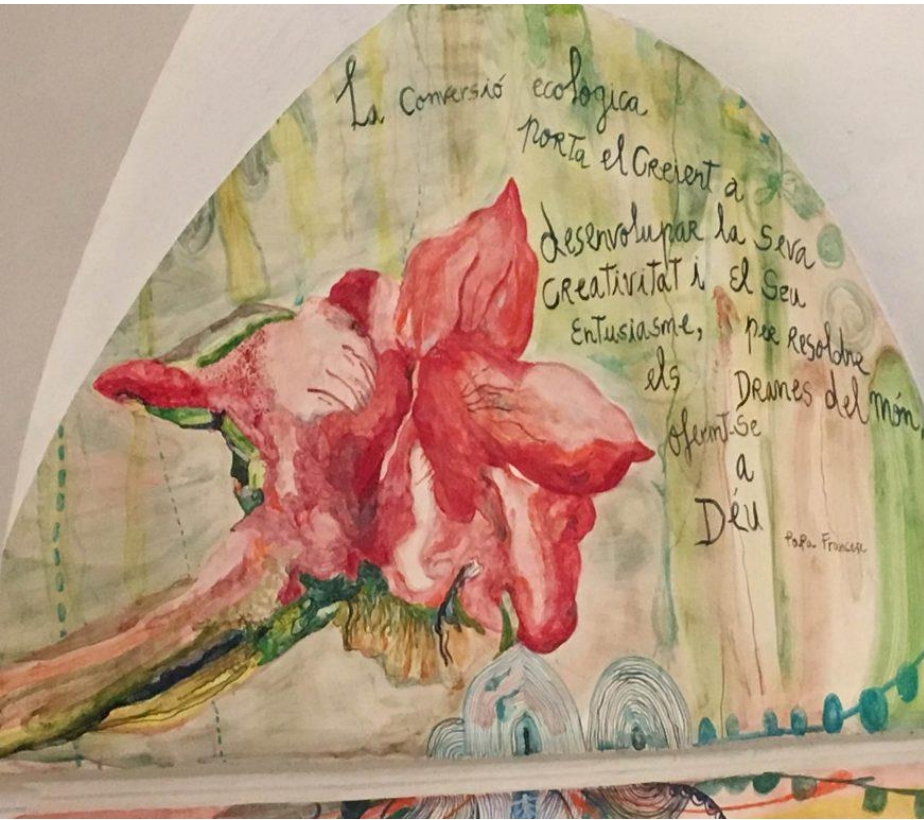 La Conversió ecologica
porta el Creient a
desenvolupar la Seva
Creativitat i El Seu
Entusiasme, per Resoldre
els Drames del món,
oferint-Se
a
Déu
Papa Francesc